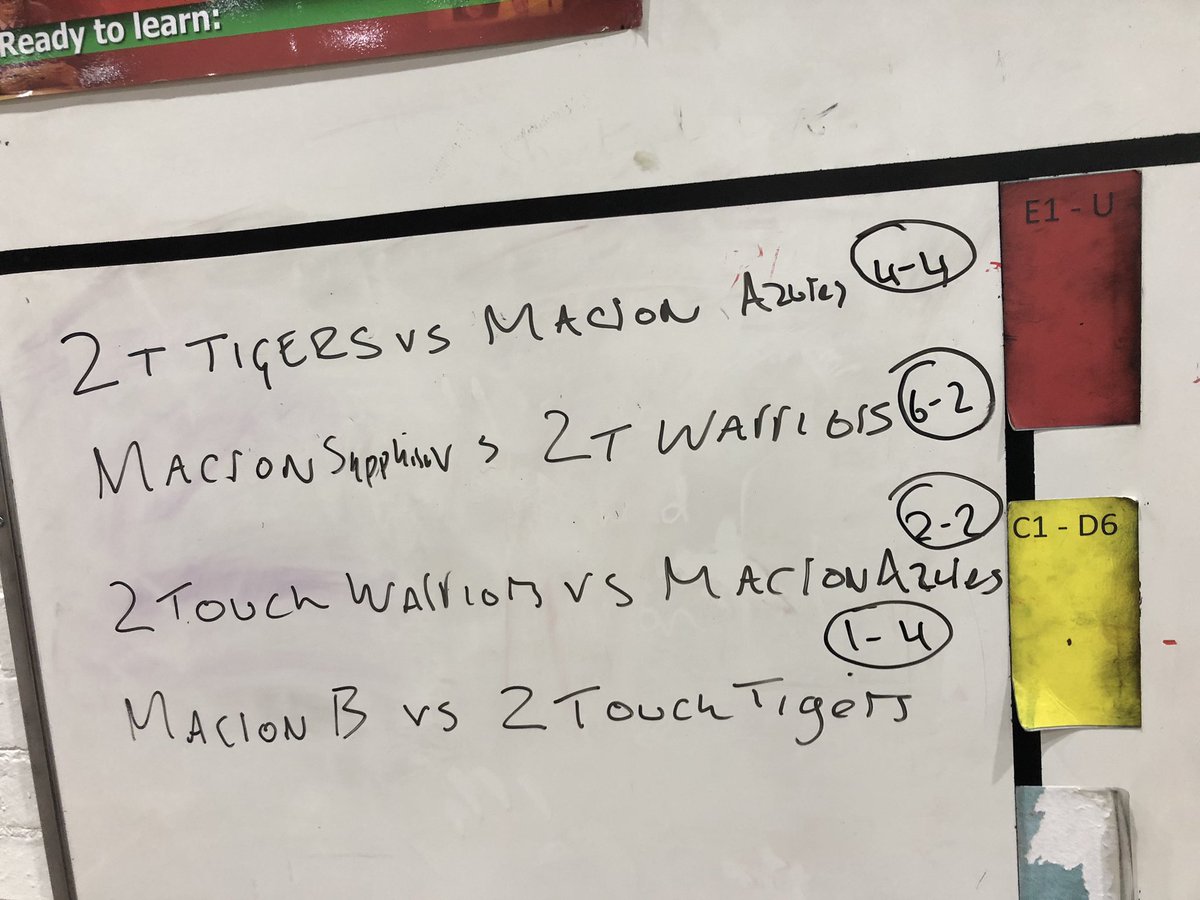 Ready to learn:
E1 - U
2T TIGERS vs MACRON Azures 4-4
MACRON Sapphire vs 2T WARRIORS 6-2
2-2
C1 - D6
2 Touch Warriors vs MACRON Azures
1-4
MACRON B vs 2 Touch Tigers